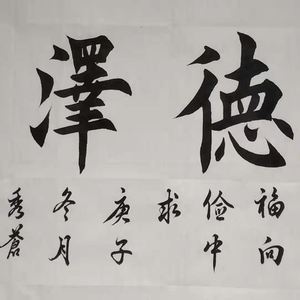 德澤
福向
俭中
求
庚子
冬月
秀蒼